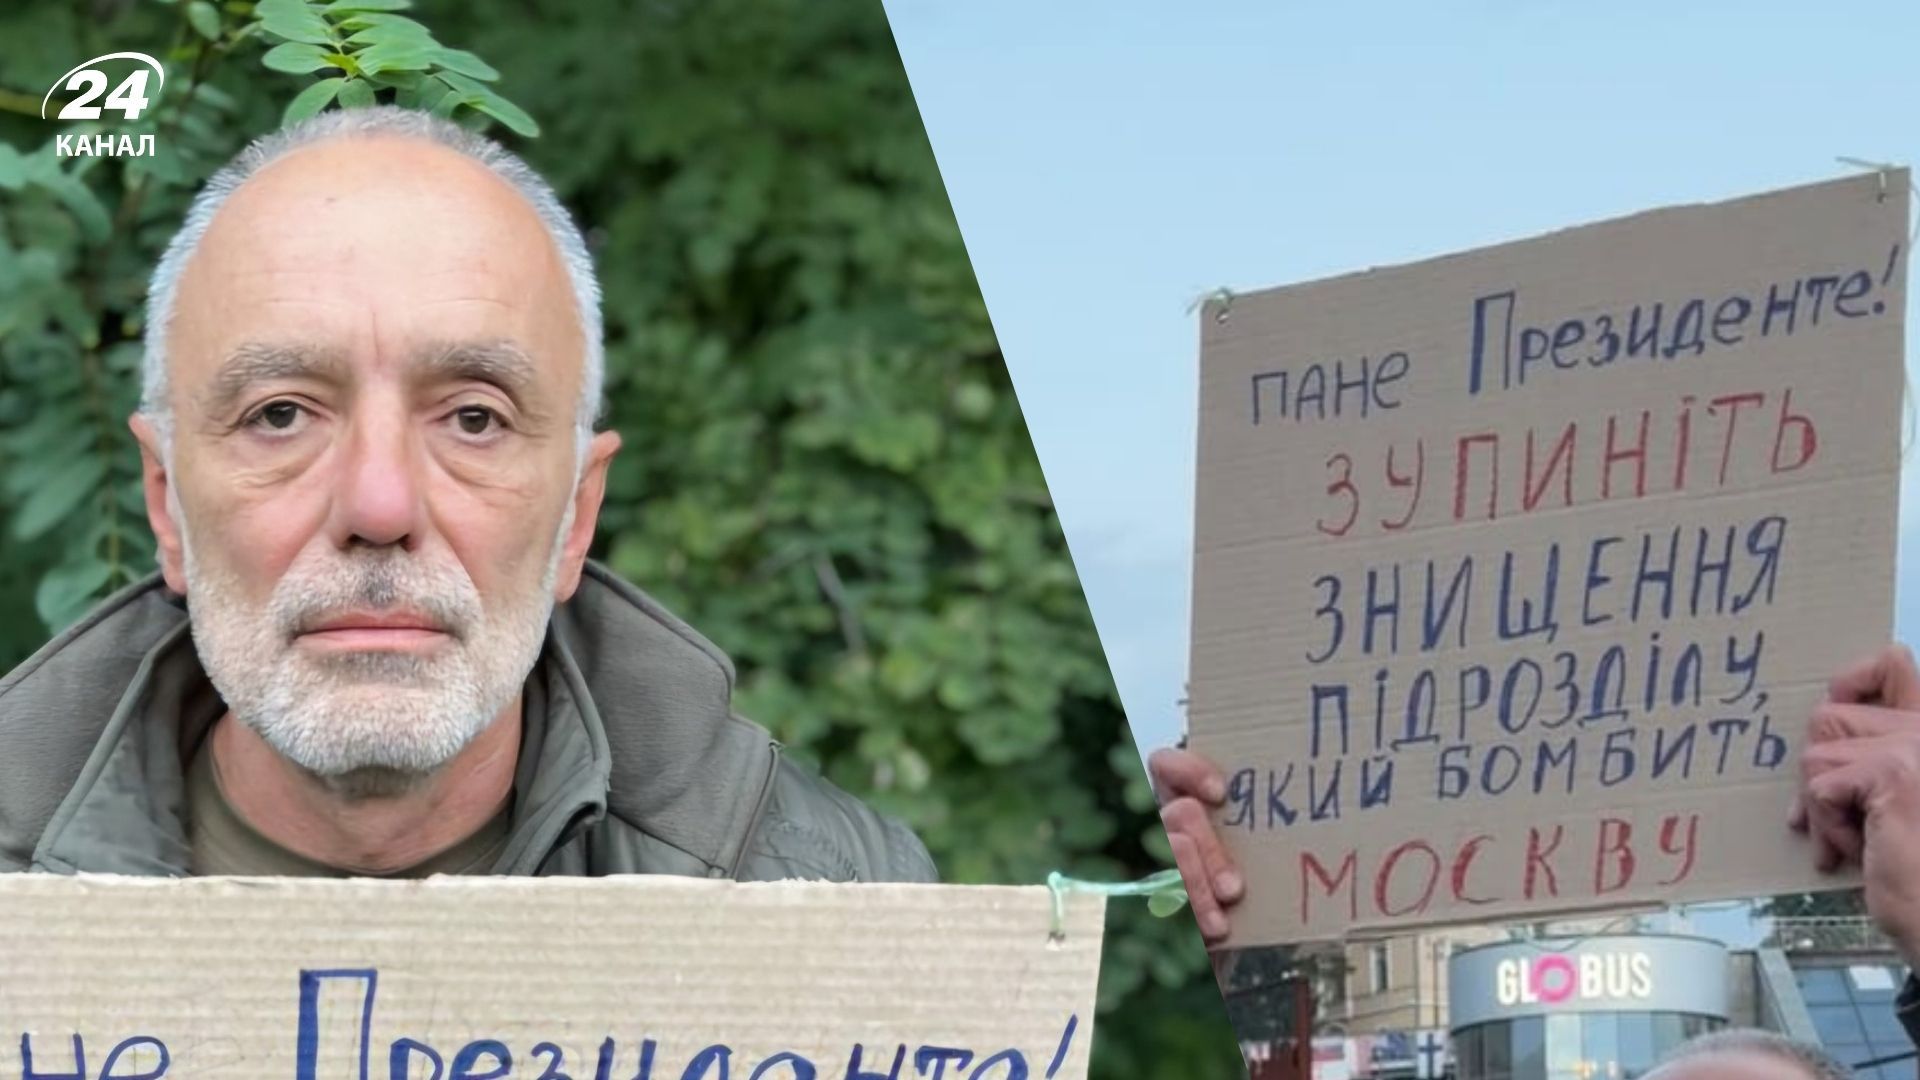 24
КАНАЛ
не Президенте!
пане Президенте!
ЗУПИНІТЬ
ЗНИЩЕННЯ
ПІДРОЗДІЛУ,
ЯКИЙ БОМБИТЬ
МОСКВУ
GLOBUS